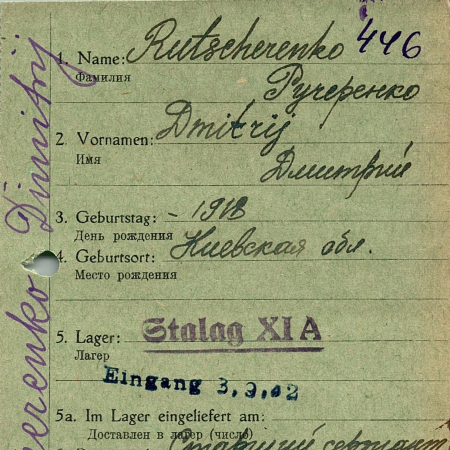 1. Name: Rutscherenko 446
Фамилия Ручеренко
2. Vornamen: Dmitrij
Имя Дмитрий
3. Geburtstag: - 1918
День рождения
4. Geburtsort: Киевская обл.
Место рождения
5. Lager: Stalag XI A
Лагер
Eingang 3.9.42
5a. Im Lager eingeliefert am:
Доставлен в лагер (число)
Старший сержант
Dimitrij